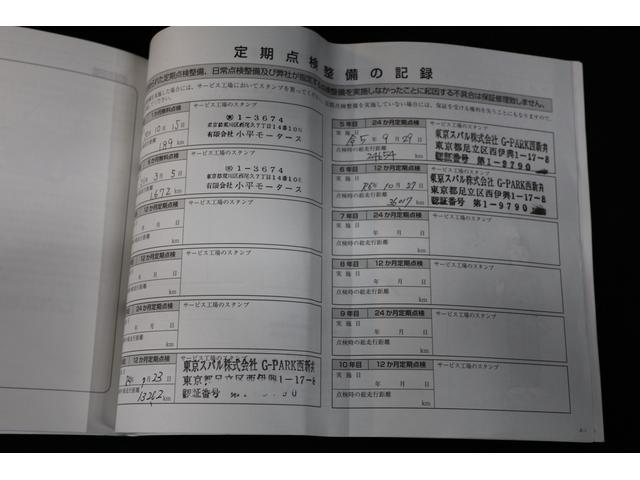 定期点検整備の記録
た定期点検整備、日常点検整備及び弊社が指定する点検整備を実施しなかったことに起因する不具合は保証修理致しません。
か月無料点検
サービス工場のスタンプ
10月15日
189 km
〒1-3674
東京都荒川区西尾久7丁目14番10号
有限会社 小平モータース
か月無料点検
サービス工場のスタンプ
3月5日
1672 km
〒1-3674
東京都荒川区西尾久7丁目14番10号
有限会社 小平モータース
12か月定期点検
サービス工場のスタンプ
年 月 日
km
24か月定期点検
サービス工場のスタンプ
年 月 日
km
12か月定期点検
サービス工場のスタンプ
9月23日
13262 km
東京スバル株式会社 G-PARK西新井
東京都足立区西伊興1-17-8
認証番号
5年目 24か月定期点検
サービス工場のスタンプ
実施日
5年9月29日
点検時の総走行距離
24654 km
東京スバル株式会社 G-PARK西新井
東京都足立区西伊興1-17-8
認証番号 第1-9790
6年目 12か月定期点検
サービス工場のスタンプ
実施日
R6年10月27日
点検時の総走行距離
36017 km
東京スバル株式会社 G-PARK西新井
東京都足立区西伊興1-17-8
認証番号 第1-9790
7年目 24か月定期点検
サービス工場のスタンプ
実施日
年 月 日
点検時の総走行距離
km
8年目 12か月定期点検
サービス工場のスタンプ
実施日
年 月 日
点検時の総走行距離
km
9年目 24か月定期点検
サービス工場のスタンプ
実施日
年 月 日
点検時の総走行距離
km
10年目 12か月定期点検
サービス工場のスタンプ
実施日
年 月 日
点検時の総走行距離
km